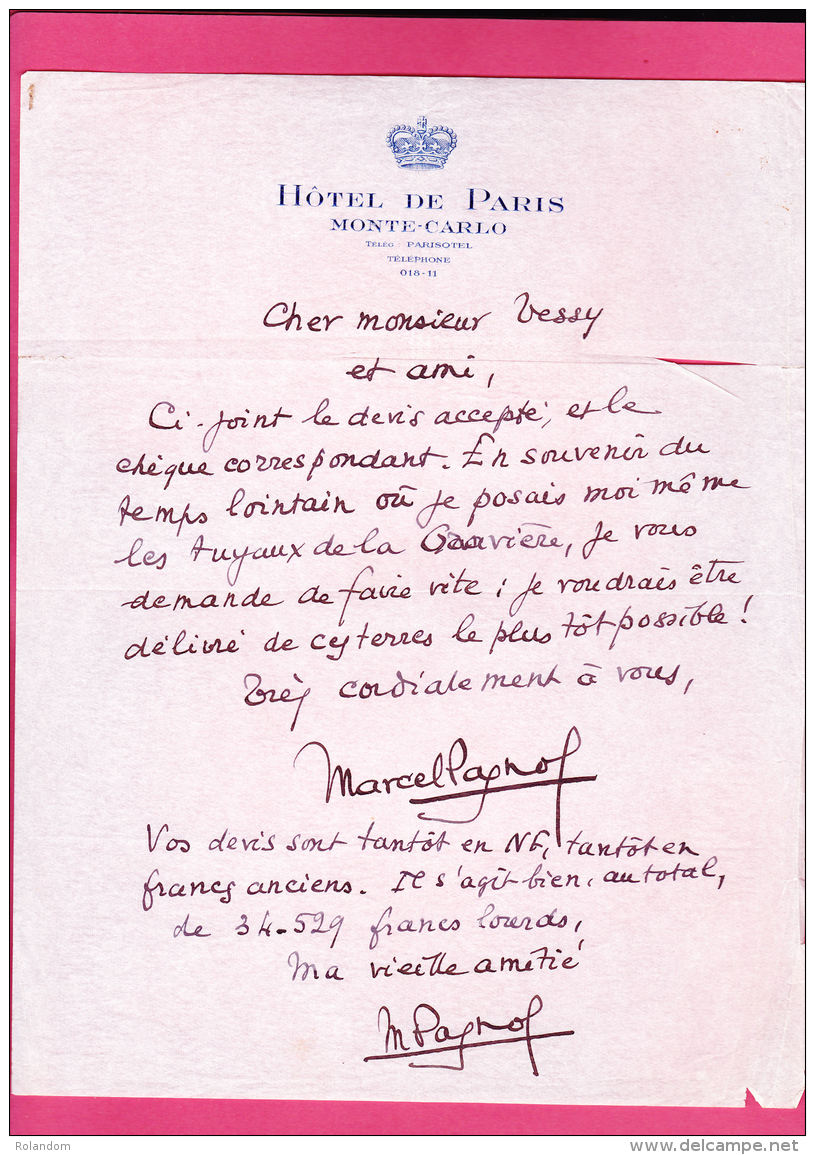 HÔTEL DE PARIS
MONTE-CARLO
TÉLÉG : PARISOTEL
TÉLÉPHONE
018-11
Cher monsieur Vessy
et ami,
Ci-joint le devis accepté, et le
chèque correspondant. En souvenir du
temps lointain où je posais moi même
les tuyaux de la, je vous
demande de faire vite ; je voudrais être
délivré de cy terres le plus tôt possible !
Très cordialement à vous,
Marcel Pagnol
Vos devis sont tantôt en NF, tantôt en
francs anciens. Il s'agit bien, au total,
de 34-529 francs lourds,
Ma vieille amitié
M Pagnol
Rolandom
delcampe.net